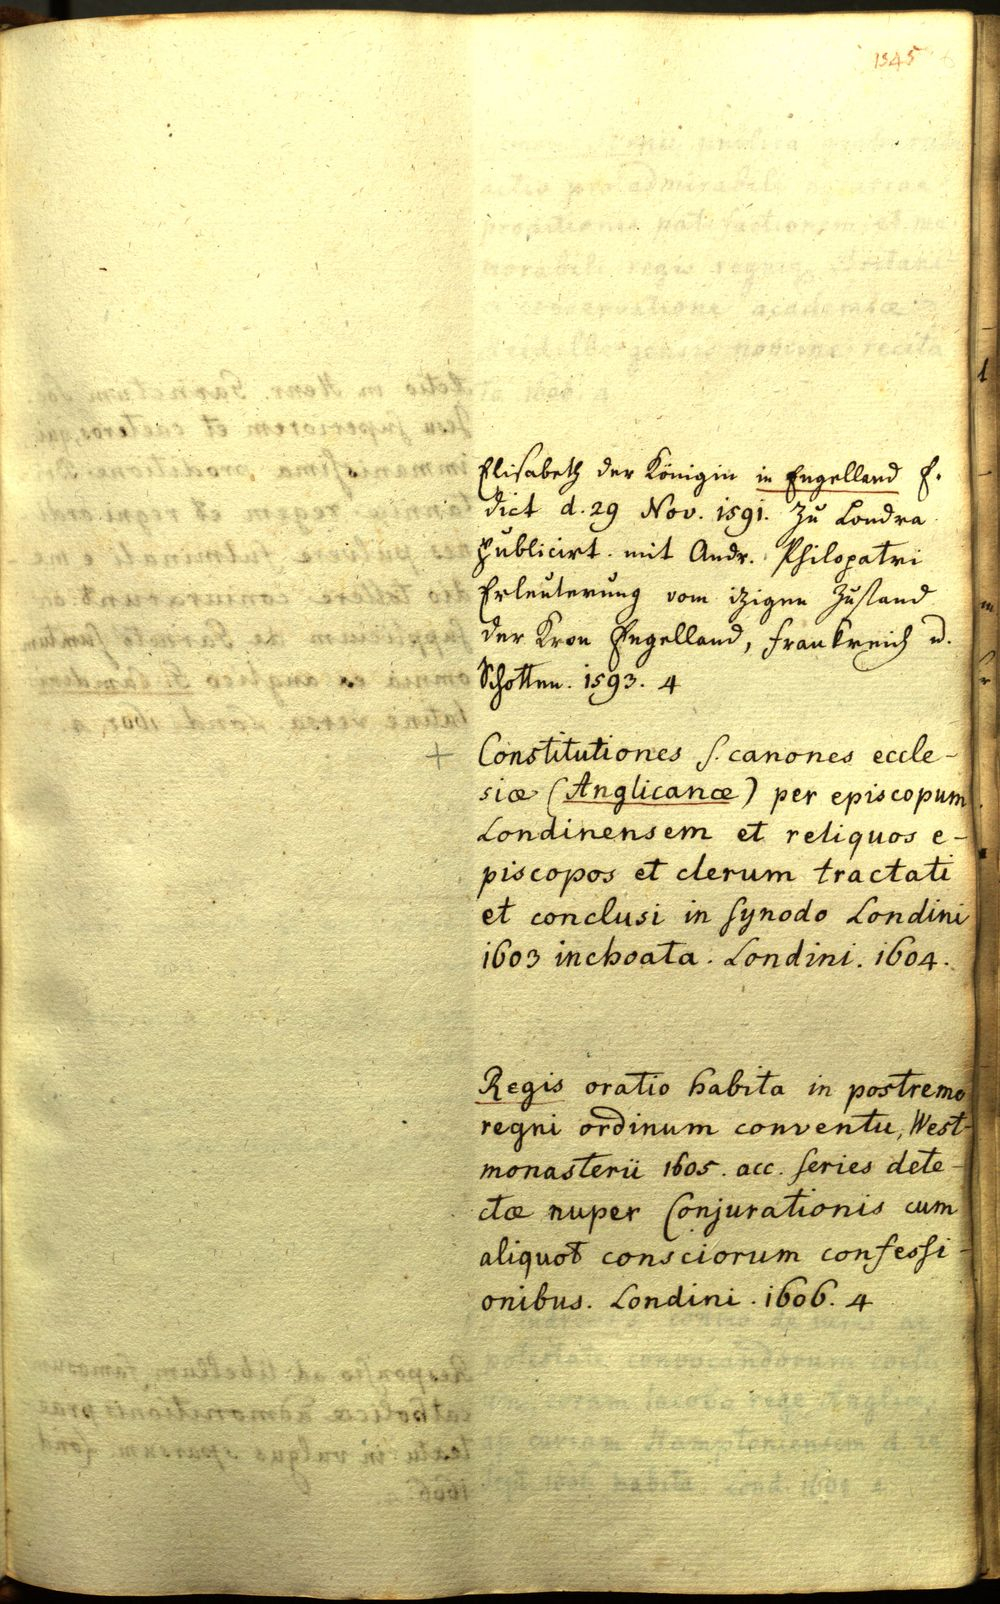 1345
Elisabeth der Königin in Engelland E-
dict d. 29 Nov. 1591. Zu Londra
publicirt. mit Andr. Philopatri
Erleuterung vom itzigen Zustand
der Kron Engelland, Frankreich u.
Schotten. 1593. 4
+ Constitutiones s. canones eccle-
siæ (Anglicanæ) per episcopum
Londinensem et reliquos e-
piscopos et clerum tractati
et conclusi in synodo Londini
1603 inchoata. Londini. 1604.
Regis oratio habita in postremo
regni ordinum conventu, West-
monasterii 1605. acc. series dete-
ctæ nuper Conjurationis cum
aliquot consciorum confessi-
onibus. Londini. 1606. 4